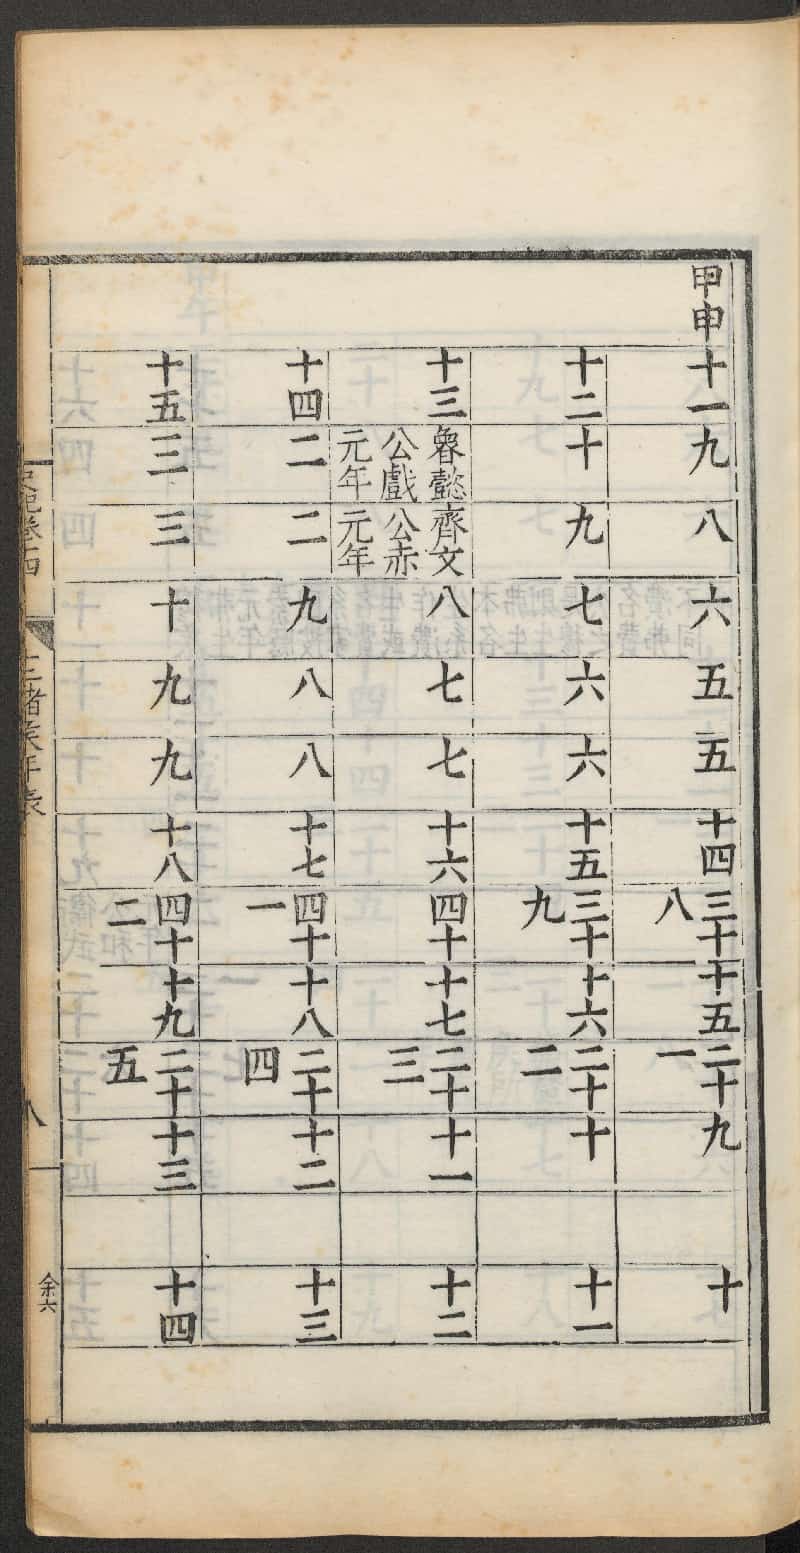 甲申 十一 九 八 六 五 五 十四 三十八 十五 二十一 九 十
十二 十 九 七 六 六 十五 三十九 十六 二十二 十 十一
十三 魯懿公戲元年 齊文公赤元年 八 七 七 十六 四十 十七 二十三 十一 十二
十四 二 二 九 八 八 十七 四十一 十八 二十四 十二 十三
十五 三 三 十 九 九 十八 四十二 十九 二十五 十三 十四
史記卷十四 十二諸侯年表 八 余六